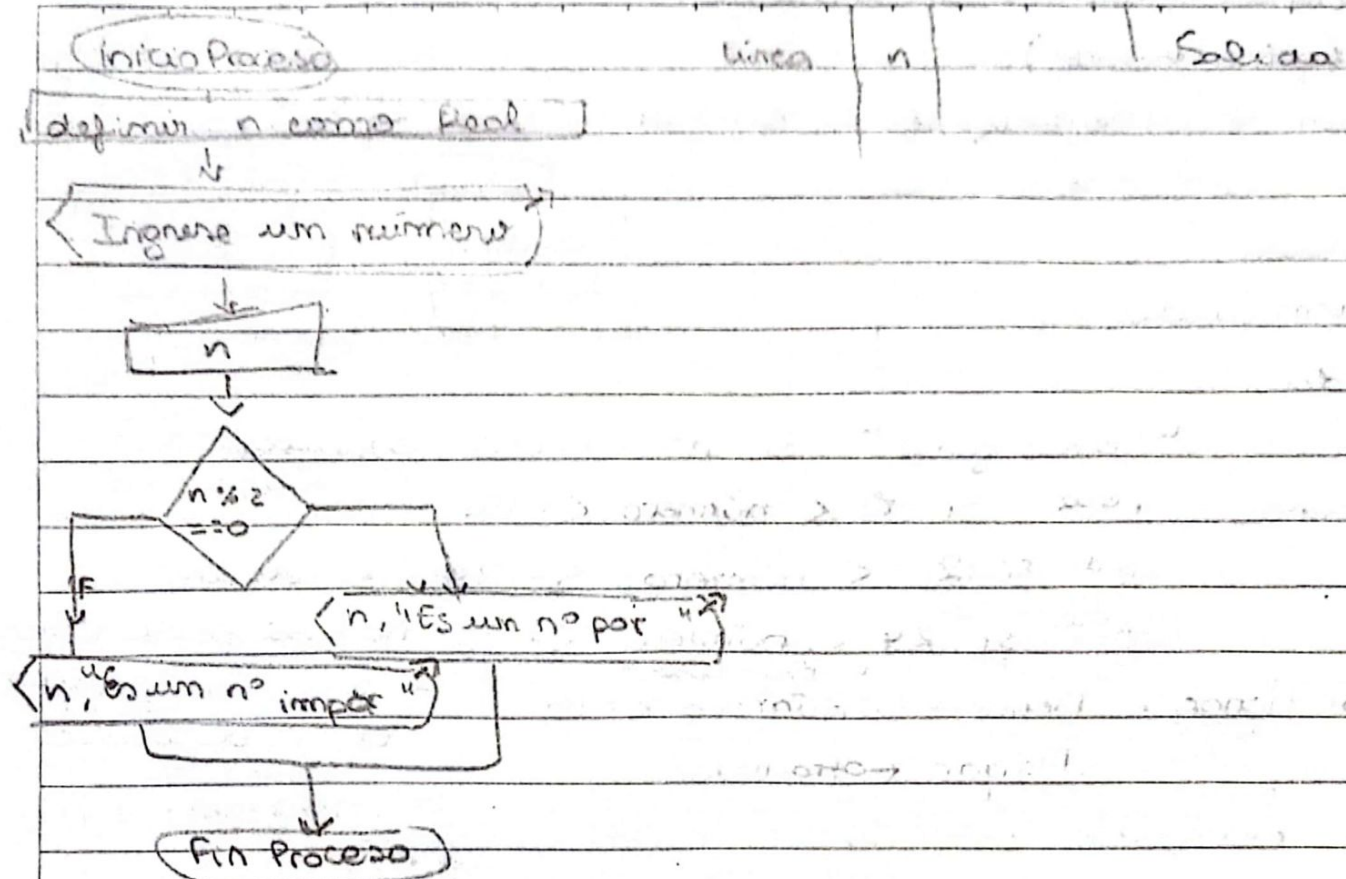 Inicio Proceso
Linea n Salida
definir n como Real
Ingrese un número
n
n % 2
==0
F
V
n, "Es un nº par "
n, "Es un nº impar "
Fin Proceso